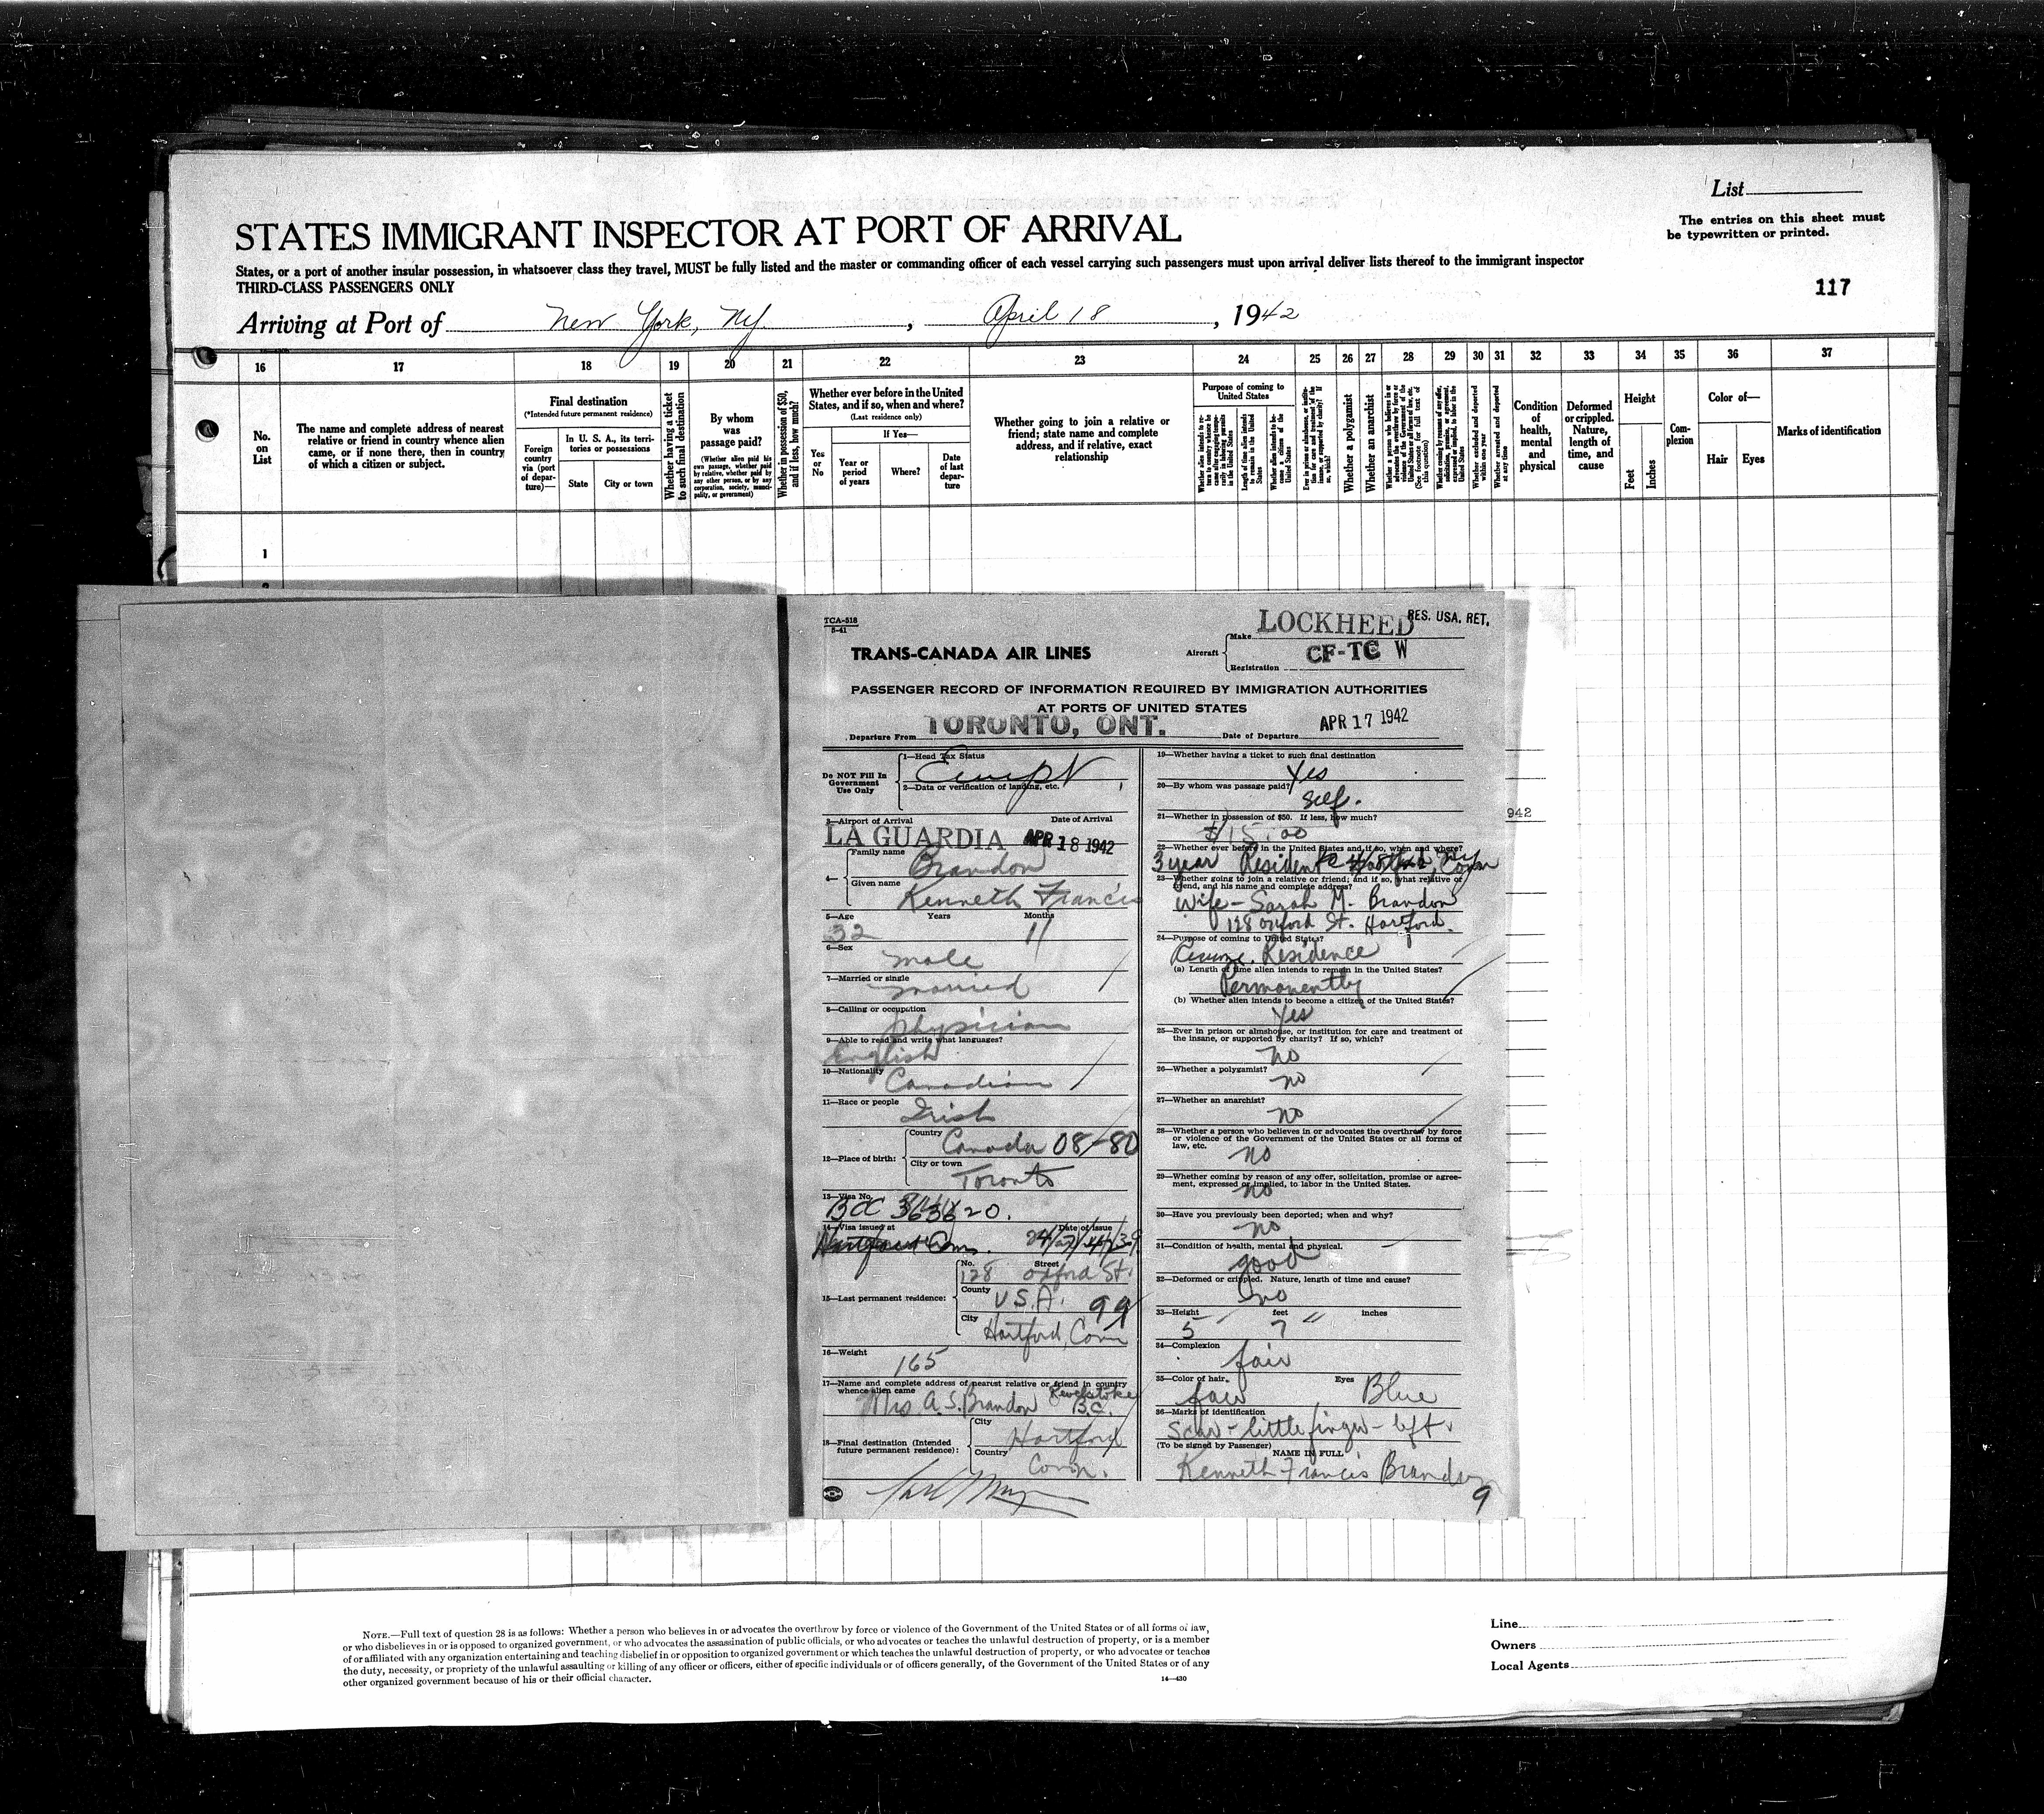 List
The entries on this sheet must
be typewritten or printed.
STATES IMMIGRANT INSPECTOR AT PORT OF ARRIVAL
States, or a port of another insular possession, in whatsoever class they travel, MUST be fully listed and the master or commanding officer of each vessel carrying such passengers must upon arrival deliver lists thereof to the immigrant inspector
THIRD-CLASS PASSENGERS ONLY
117
Arriving at Port of New York, NY. , April 18 , 1942
16 17 18 19 20 21 22 23 24 25 26 27 28 29 30 31 32 33 34 35 36 37
No.
on
List
The name and complete address of nearest
relative or friend in country whence alien
came, or if none there, then in country
of which a citizen or subject.
Final destination
(*Intended future permanent residence)
Foreign
country
via (port
of depar-
ture)—
In U. S. A., its terri-
tories or possessions
State
City or town
Whether having a ticket
to such final destination
By whom
was
passage paid?
(Whether alien paid his
own passage, whether paid
by relative, whether paid by
any other person, or by any
corporation, society, munici-
pality, or government)
Whether in possession of $50,
and if less, how much?
Whether ever before in the United
States, and if so, when and where?
(Last residence only)
Yes
or
No
If Yes—
Year or
period
of years
Where?
Date
of last
depar-
ture
Whether going to join a relative or
friend; state name and complete
address, and if relative, exact
relationship
Purpose of coming to
United States
Whether a polygamist
Whether an anarchist
Condition
of
health,
mental
and
physical
Deformed
or crippled.
Nature,
length of
time, and
cause
Height
Feet
Inches
Com-
plexion
Color of—
Hair
Eyes
Marks of identification
1
TCA-518
5-41
TRANS-CANADA AIR LINES
Aircraft
Make LOCKHEED
RES. USA. RET.
Registration CF-TC W
PASSENGER RECORD OF INFORMATION REQUIRED BY IMMIGRATION AUTHORITIES
AT PORTS OF UNITED STATES
Departure From TORONTO, ONT. Date of Departure APR 17 1942
Do NOT Fill In
Government
Use Only
1—Head Tax Status
2—Data or verification of landing, etc.
3—Airport of Arrival Date of Arrival
LA GUARDIA APR 18 1942
4— Family name Brandon
Given name Kenneth Francis
5—Age Years Months
32 11
6—Sex
male
7—Married or single
married
8—Calling or occupation
physician
9—Able to read and write what languages?
English
10—Nationality
Canadian
11—Race or people
Irish
12—Place of birth:
Country Canada 08-80
City or town
Toronto
13—Visa No.
14—Visa issued at Date of issue
15—Last permanent residence:
No. Street
128 Oxford St.
County
U S.A. 99
City
Hartford, Conn
16—Weight
165
17—Name and complete address of nearest relative or friend in country
whence alien came
Mrs A. S. Brandon Revelstoke
B.C.
18—Final destination (Intended
future permanent residence):
City
Hartford
Country
Conn.
19—Whether having a ticket to such final destination
Yes
20—By whom was passage paid?
Self.
21—Whether in possession of $50. If less, how much?
$15.00
22—Whether ever before in the United States and if so, when and where?
3 year Resident Conn
23—Whether going to join a relative or friend; and if so, what relative or
friend, and his name and complete address?
Wife - Sarah M. Brandon
128 Oxford St. Hartford.
24—Purpose of coming to United States?
Residence
(a) Length of time alien intends to remain in the United States?
Permanently
(b) Whether alien intends to become a citizen of the United States?
Yes
25—Ever in prison or almshouse, or institution for care and treatment of
the insane, or supported by charity? If so, which?
no
26—Whether a polygamist?
no
27—Whether an anarchist?
no
28—Whether a person who believes in or advocates the overthrow by force
or violence of the Government of the United States or all forms of
law, etc.
no
29—Whether coming by reason of any offer, solicitation, promise or agree-
ment, expressed or implied, to labor in the United States.
no
30—Have you previously been deported; when and why?
no
31—Condition of health, mental and physical.
good
32—Deformed or crippled. Nature, length of time and cause?
no
33—Height feet inches
5 7
34—Complexion
fair
35—Color of hair. Eyes
fair Blue
36—Marks of identification
Scar - little finger - left.
(To be signed by Passenger)
NAME IN FULL
Kenneth Francis Brandon
9
942
NOTE.—Full text of question 28 is as follows: Whether a person who believes in or advocates the overthrow by force or violence of the Government of the United States or of all forms of law,
or who disbelieves in or is opposed to organized government, or who advocates the assassination of public officials, or who advocates or teaches the unlawful destruction of property, or is a member
of or affiliated with any organization entertaining and teaching disbelief in or opposition to organized government or which teaches the unlawful destruction of property, or who advocates or teaches
the duty, necessity, or propriety of the unlawful assaulting or killing of any officer or officers, either of specific individuals or of officers generally, of the Government of the United States or of any
other organized government because of his or their official character.
14—430
Line
Owners
Local Agents